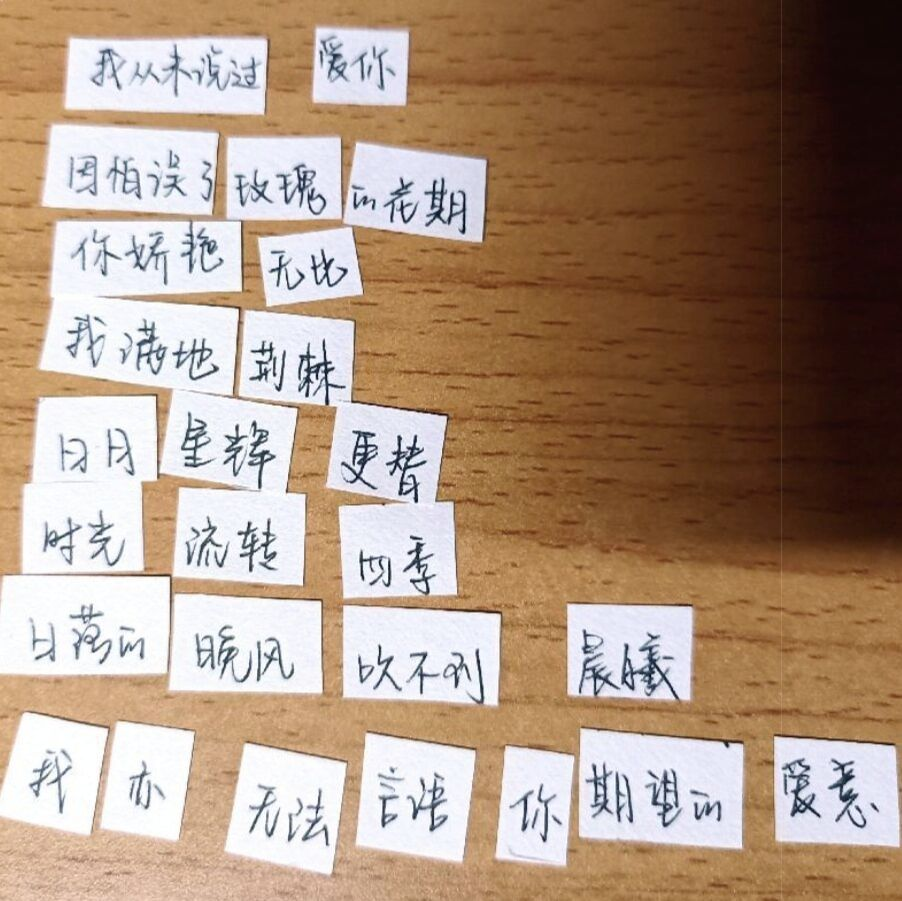 我从未说过 爱你
因怕误了 玫瑰 的花期
你娇艳 无比
我满地 荆棘
日月 星辉 更替
时光 流转 四季
日落的 晚风 吹不到 晨曦
我 亦 无法 言语 你 期望的 爱意